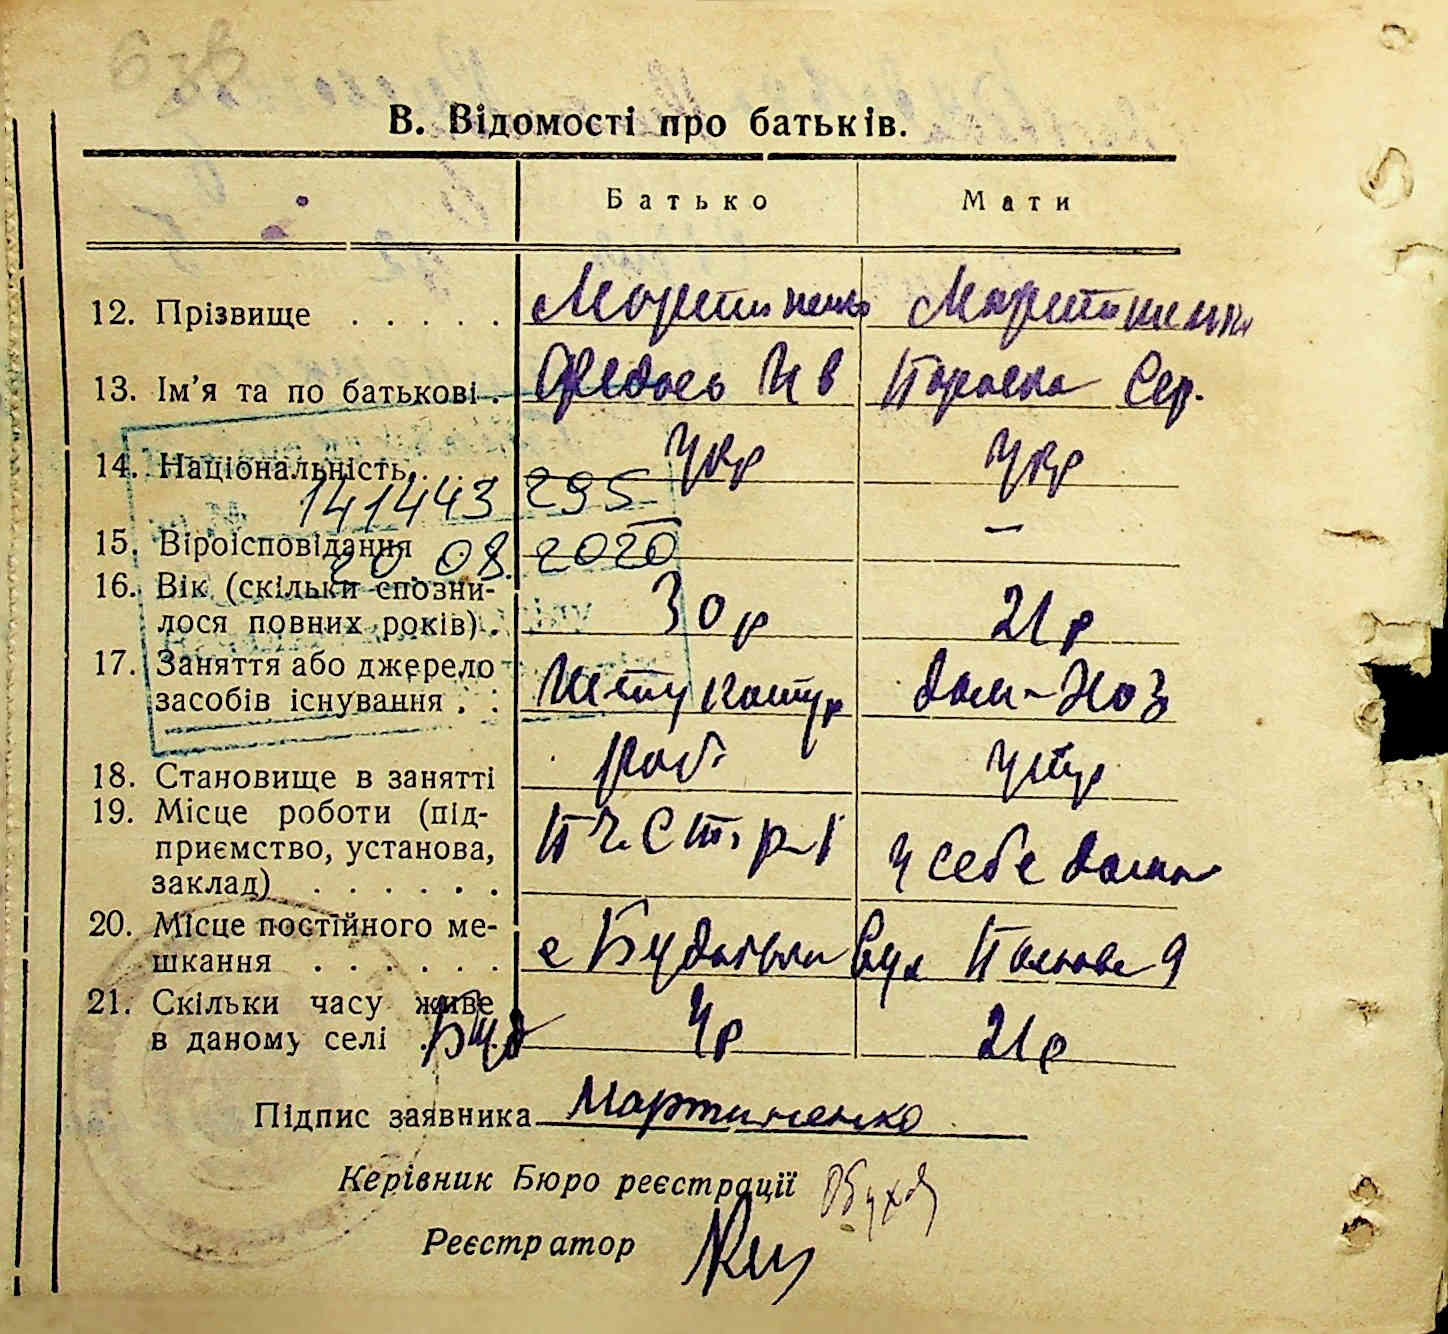 В. Відомості про батьків.
Батько Мати
12. Прізвище . . . . . Мартиненко Мартиненко
13. Ім'я та по батькові . Федось Ив Параска Сер.
14. Національність . . . Укр Укр
141443 295
15. Віроісповідання — —
20.08.2020
16. Вік (скільки сповни-
лося повних років) . 30 р 21 р
17. Заняття або джерело
засобів існування . : Штукатур дом-хоз
18. Становище в занятті роб утр
19. Місце роботи (під-
приємство, установа,
заклад) . . . . . . у себе дома
20. Місце постійного ме-
шкання . . . . . . с вул Польова 9
21. Скільки часу живе
в даному селі . Буд 4р 21р
Підпис заявника Мартиненко
Керівник Бюро реєстрації
Реєстратор